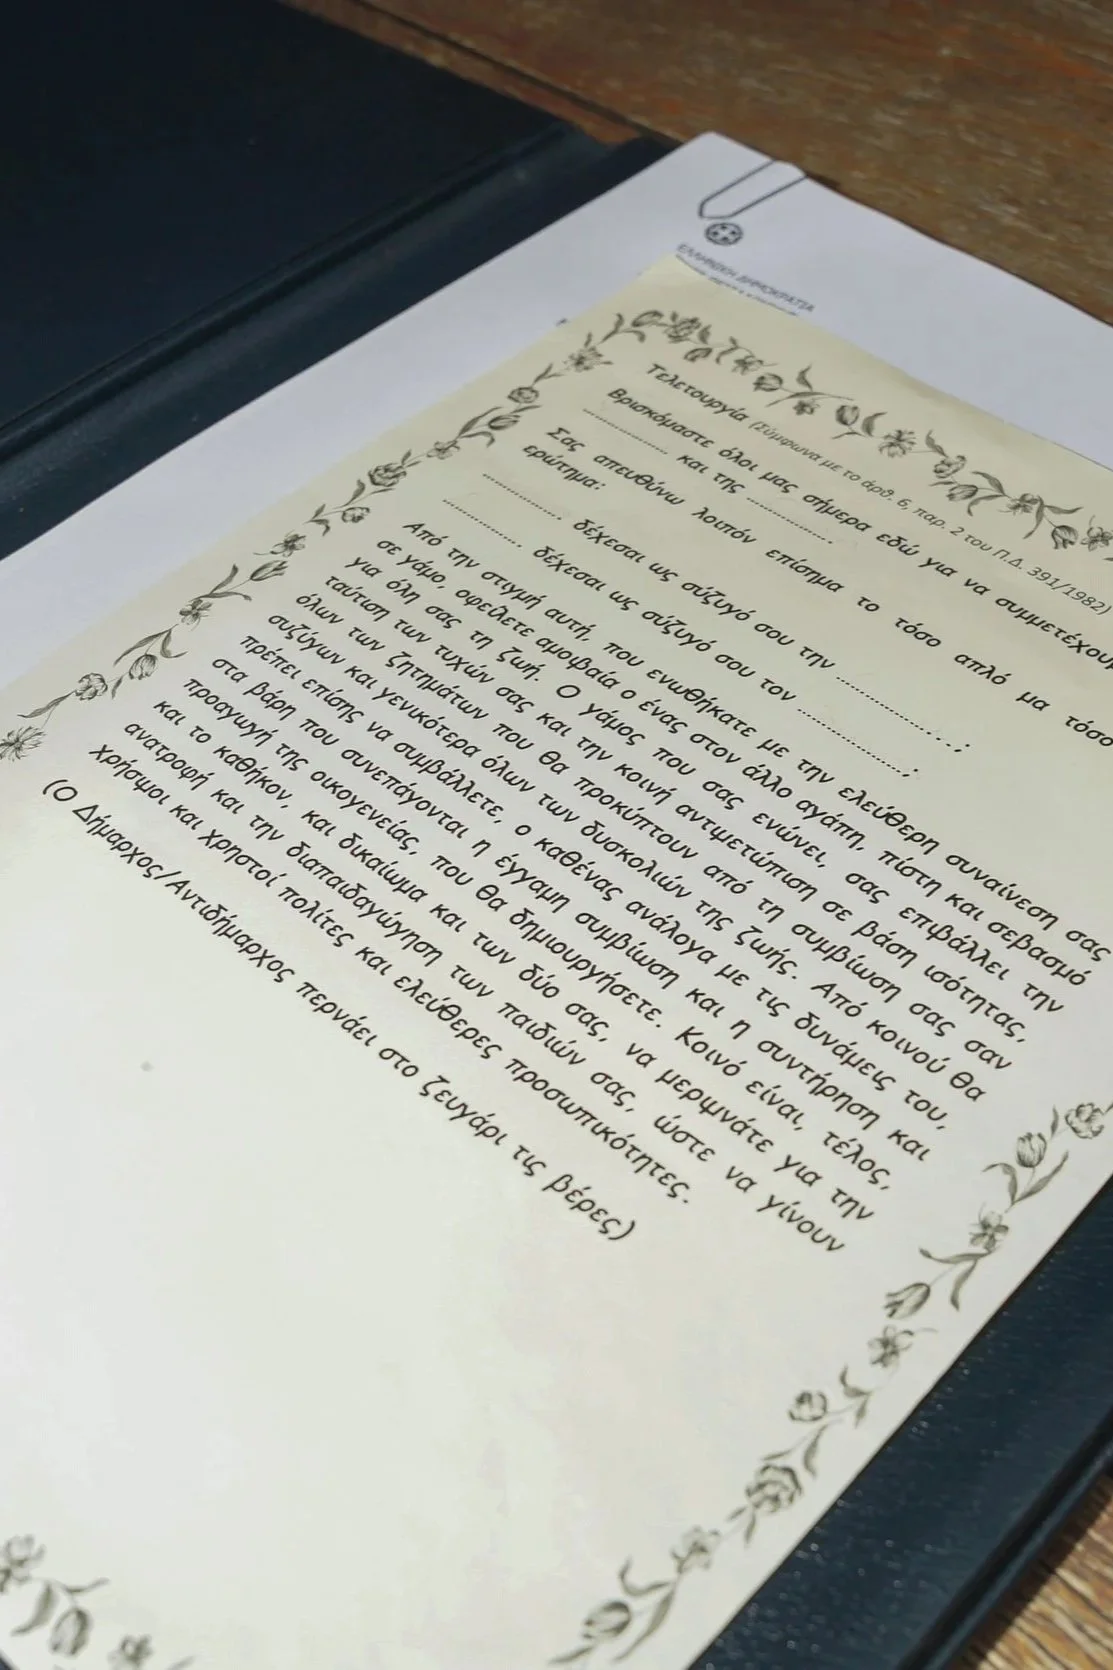 ΕΛΛΗΝΙΚΗ ΔΗΜΟΚΡΑΤΙΑ
Τελετουργία (Σύμφωνα με το άρθ. 6, παρ. 2 του Π.Δ. 391/1982)
Βρισκόμαστε όλοι μας σήμερα εδώ για να
............... και της ...............
Σας απευθύνω λοιπόν επίσημα το τόσο απλό μα τόσο
ερώτημα:
............... δέχεσαι ως σύζυγό σου την ...............;
............... δέχεσαι ως σύζυγό σου τον ...............;
Από την στιγμή αυτή, που ενωθήκατε με την ελεύθερη συναίνεση σας
σε γάμο, οφείλετε αμοιβαία ο ένας στον άλλο αγάπη, πίστη και σεβασμό
για όλη σας τη ζωή. Ο γάμος που σας ενώνει, σας επιβάλλει την
ταύτιση των τυχών σας και την κοινή αντιμετώπιση σε βάση ισότητας,
όλων των ζητημάτων που θα προκύπτουν από τη συμβίωση σας σαν
συζύγων και γενικότερα όλων των δυσκολιών της ζωής. Από κοινού θα
πρέπει επίσης να συμβάλλετε, ο καθένας ανάλογα με τις δυνάμεις του,
στα βάρη που συνεπάγονται η έγγαμη συμβίωση και η συντήρηση και
προαγωγή της οικογενείας, που θα δημιουργήσετε. Κοινό είναι, τέλος,
και το καθήκον, και δικαίωμα και των δύο σας, να μεριμνάτε για την
ανατροφή και την διαπαιδαγώγηση των παιδιών σας, ώστε να γίνουν
χρήσιμοι και χρηστοί πολίτες και ελεύθερες προσωπικότητες.
(Ο Δήμαρχος/Αντιδήμαρχος περνάει στο ζευγάρι τις βέρες)